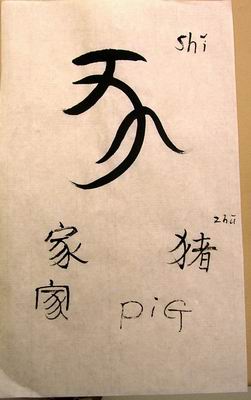 shǐ
豕
zhū
家 猪
家 piG